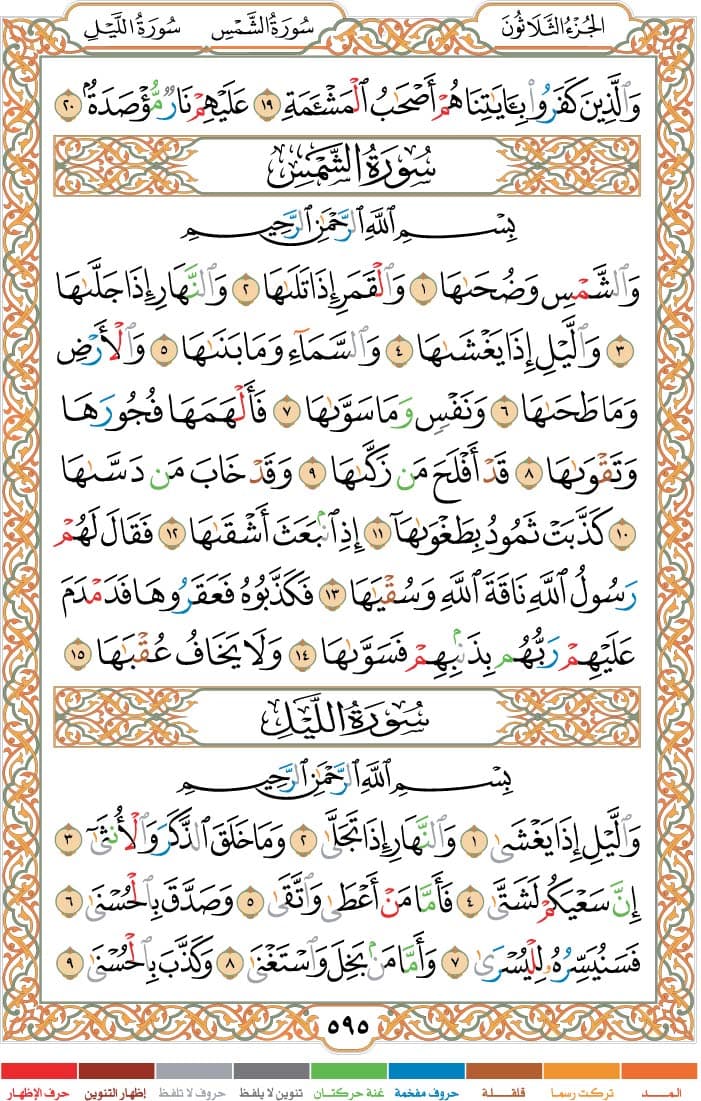 الجُزْءُ الثَّلَاثُونَ سُورَةُ الشَّمْسِ سُورَةُ اللَّيْلِ
وَٱلَّذِينَ كَفَرُوا۟ بِـَٔايَـٰتِنَا هُمْ أَصْحَـٰبُ ٱلْمَشْـَٔمَةِ ١٩ عَلَيْهِمْ نَارٌ مُّؤْصَدَةٌۢ ٢٠
سُورَةُ الشَّمْسِ
بِسْمِ ٱللَّهِ ٱلرَّحْمَـٰنِ ٱلرَّحِيمِ
وَٱلشَّمْسِ وَضُحَىٰهَا ١ وَٱلْقَمَرِ إِذَا تَلَىٰهَا ٢ وَٱلنَّهَارِ إِذَا جَلَّىٰهَا
٣ وَٱلَّيْلِ إِذَا يَغْشَىٰهَا ٤ وَٱلسَّمَآءِ وَمَا بَنَىٰهَا ٥ وَٱلْأَرْضِ
وَمَا طَحَىٰهَا ٦ وَنَفْسٍ وَمَا سَوَّىٰهَا ٧ فَأَلْهَمَهَا فُجُورَهَا
وَتَقْوَىٰهَا ٨ قَدْ أَفْلَحَ مَن زَكَّىٰهَا ٩ وَقَدْ خَابَ مَن دَسَّىٰهَا
١٠ كَذَّبَتْ ثَمُودُ بِطَغْوَىٰهَآ ١١ إِذِ ٱنۢبَعَثَ أَشْقَىٰهَا ١٢ فَقَالَ لَهُمْ
رَسُولُ ٱللَّهِ نَاقَةَ ٱللَّهِ وَسُقْيَـٰهَا ١٣ فَكَذَّبُوهُ فَعَقَرُوهَا فَدَمْدَمَ
عَلَيْهِمْ رَبُّهُم بِذَنۢبِهِمْ فَسَوَّىٰهَا ١٤ وَلَا يَخَافُ عُقْبَـٰهَا ١٥
سُورَةُ اللَّيْلِ
بِسْمِ ٱللَّهِ ٱلرَّحْمَـٰنِ ٱلرَّحِيمِ
وَٱلَّيْلِ إِذَا يَغْشَىٰ ١ وَٱلنَّهَارِ إِذَا تَجَلَّىٰ ٢ وَمَا خَلَقَ ٱلذَّكَرَ وَٱلْأُنثَىٰٓ ٣
إِنَّ سَعْيَكُمْ لَشَتَّىٰ ٤ فَأَمَّا مَنْ أَعْطَىٰ وَٱتَّقَىٰ ٥ وَصَدَّقَ بِٱلْحُسْنَىٰ ٦
فَسَنُيَسِّرُهُۥ لِلْيُسْرَىٰ ٧ وَأَمَّا مَنۢ بَخِلَ وَٱسْتَغْنَىٰ ٨ وَكَذَّبَ بِٱلْحُسْنَىٰ ٩
٥٩٥
المــد تركت رسما قلقلة حروف مفخمة غنة حركتان تنوين لا يلفظ حروف لا تلفظ إظهار التنوين حرف الإظهار